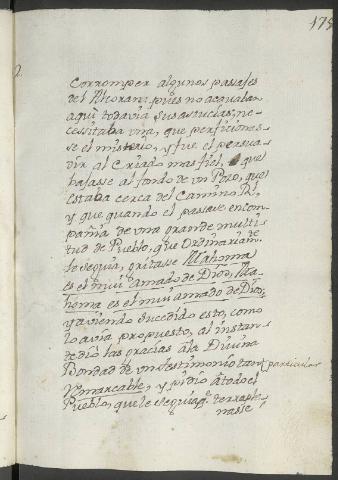 175
Corromper algunos passajes
del Alcoran: pues no acauaban
aqui todavia sus astucias; ne-
cessitaba una, que perficiones-
se el misterio, y fue el persua-
dir al Criado mas fiel, que
bajasse al fondo de un Pozo, que
estaba cerca del Camino Rl,
y que quando el passase en com-
pañia de una grande multi-
tud de Pueblo, que Ordinariam.
le seguia, gritasse Mahoma
es el mui amado de Dios, Ma-
homa es el mui amado de Dios,
y aviendo sucedido esto, como
lo avia propuesto, al instan-
te dió las gracias a la Divina
Bondad de un testimonio tan particular
Remarcable, y pidió à todo el
Pueblo, que le seguia, q. terraple-
nasse